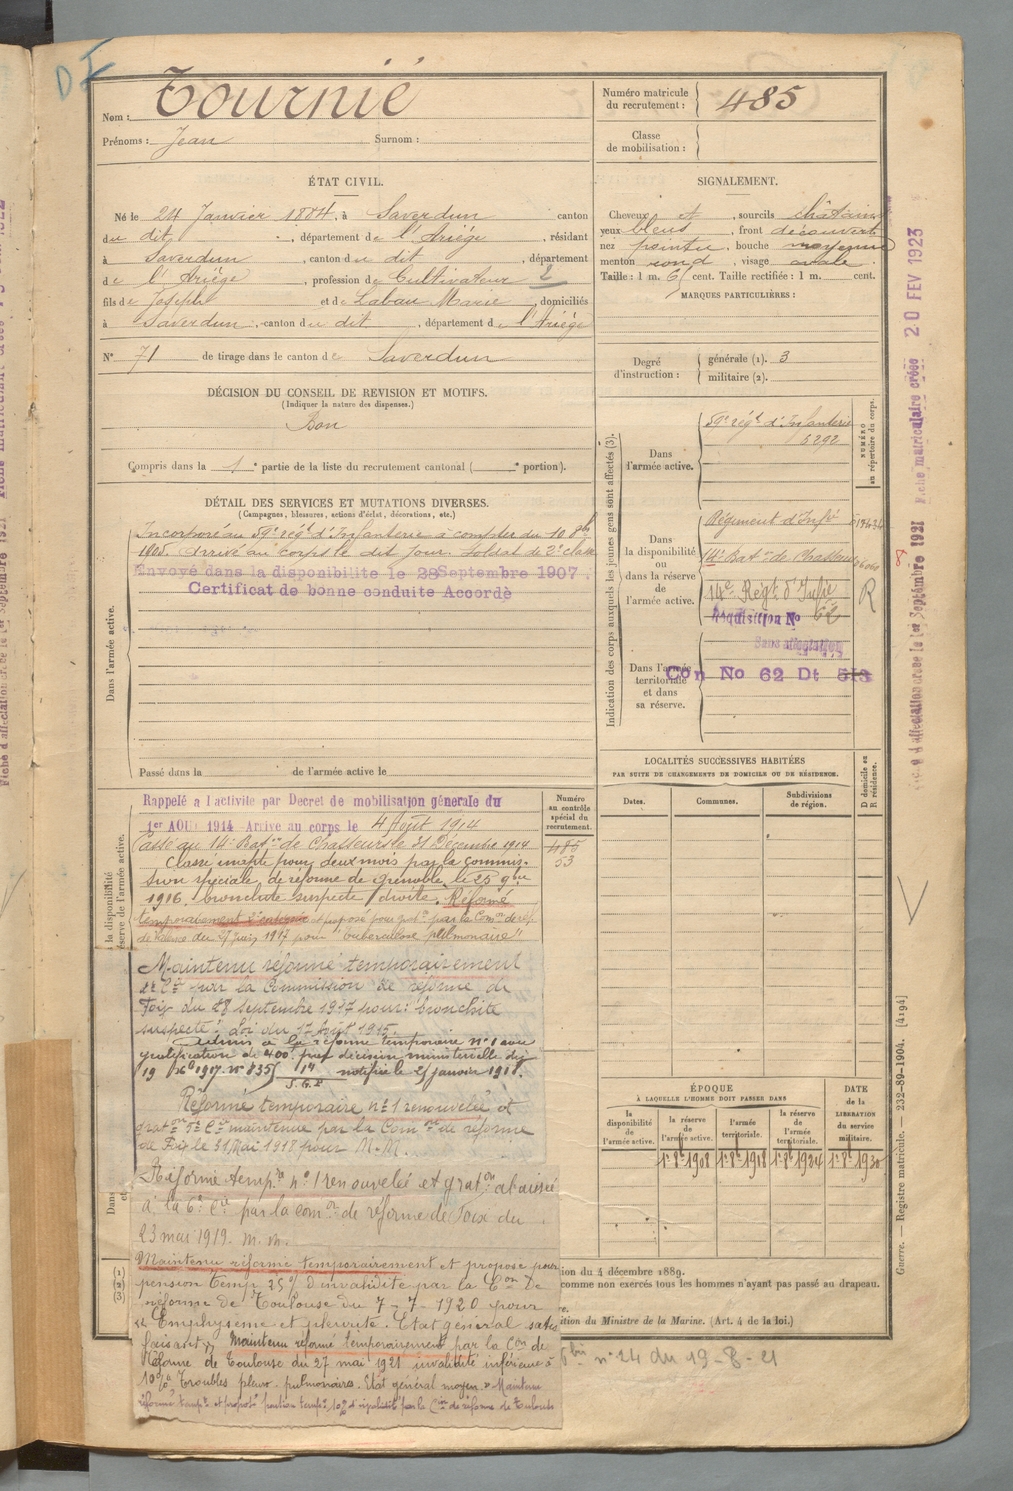 DI
Nom : Tournié
Prénoms : Jean Surnom :
Numéro matricule du recrutement : 485
Classe de mobilisation :
ÉTAT CIVIL.
Né le 24 Janvier 1884, à Saverdun canton
du dit, département de l'Ariège, résidant
à Saverdun, canton du dit, département
de l'Ariège, profession de Cultivateur
fils de Joseph et de Labau Marie, domiciliés
à Saverdun, canton du dit, département de l'Ariège
N° 71 de tirage dans le canton de Saverdun
SIGNALEMENT.
Cheveux et, sourcils châtains
yeux bleus, front découvert
nez pointu, bouche moyenne
menton rond, visage ovale.
Taille : 1 m. 6 cent. Taille rectifiée : 1 m. cent.
MARQUES PARTICULIÈRES :
Degré d'instruction : générale (1). 3
militaire (2).
DÉCISION DU CONSEIL DE REVISION ET MOTIFS.
(Indiquer la nature des dispenses.)
Bon
Compris dans la 1e partie de la liste du recrutement cantonal ( e portion).
DÉTAIL DES SERVICES ET MUTATIONS DIVERSES.
(Campagnes, blessures, actions d'éclat, décorations, etc.)
Dans l'armée active.
Incorporé au 59e régt d'Infanterie à compter du 10 8bre
1905. Arrivé au corps le dit jour. Soldat de 2e classe
Envoyé dans la disponibilite le 28 Septembre 1907.
Certificat de bonne conduite Accordè
Passé dans la de l'armée active le
Indication des corps auxquels les jeunes gens sont affectés (3).
NUMÉRO au répertoire du corps.
Dans l'armée active.
59e régt d'Infanterie
5292
Dans la disponibilité ou dans la réserve de l'armée active.
Régiment d'Infie
14e Baton de Chasseurs
14e Régt d'Infie
R
62
Dans l'armée territoriale et dans sa réserve.
Sans affectation
Con No 62 Dt 513
LOCALITÉS SUCCESSIVES HABITÉES
PAR SUITE DE CHANGEMENTS DE DOMICILE OU DE RÉSIDENCE.
Dates. Communes. Subdivisions de région.
D domicile ou R résidence.
la disponibilité
réserve de l'armée active.
Rappelé a l'activite par Decret de mobilisation génerale du
1er AOU 1914 Arrive au corps le 4 Août 1914
Numéro au contrôle spécial du recrutement.
485
53
Passé au 14e Baton de Chasseurs le 31 Décembre 1914
Classé inapte pour deux mois par la commis-
sion spéciale de réforme de Grenoble le 25 9bre
1916. bronchite suspecte droite. Réformé
temporairement 2e catégorie et proposé pour grat. par la Comon de réf.
de Valence du 27 juin 1917 pour "tuberculose pulmonaire"
Maintenu réformé temporairement
2e Cie par la Commission de réforme de
Foix du 28 septembre 1917 pour : bronchite
suspecte. Loi du 17 Août 1915.
Admis à la réforme temporaire n° 1 avec
gratification de 400f par décision ministérielle du
19 Xbre 1917 n° 835 notifiée le 25 janvier 1918.
Réforme temporaire n° 1 renouvelée et
graton 5e Cie maintenue par la Comon de réforme
de Foix le 31 Mai 1918 pour M. M.
Réforme tempre n° 1 renouvelée et graton abaissée
à la 6e Cie par la comon de réforme de Foix du
23 mai 1919. m. m.
Maintenu réformé temporairement et proposé pour
pension temp. 25% d'invalidité par la Con De
réforme de Toulouse du 7-7-1920 pour
"Emphysème et pleurite. Etat general satis-
faisant". Maintenu réformé temporairement par la Con de
Réforme de Toulouse du 27 mai 1921 invalidité inférieure à
10% Troubles pleuro-pulmonaires. Etat général moyen. Maintenu
ÉPOQUE
À LAQUELLE L'HOMME DOIT PASSER DANS
la disponibilité de l'armée active.
la réserve de l'armée active.
l'armée territoriale.
la réserve de l'armée territoriale.
DATE de la LIBÉRATION du service militaire.
1er 8bre 1908 1er 8bre 1918 1er 8bre 1924 1er 8bre 1930
(1)
(2)
(3)
ion du 4 décembre 1889.
comme non exercés tous les hommes n'ayant pas passé au drapeau.
re.
ition du Ministre de la Marine. (Art. 4 de la loi.)
n° 24 du 19-8-21
Guerre. — Registre matricule. — 232-89-1904. [4194]
Fiche matriculaire créée 20 FEV 1923
d'affectation créée le 1er Septembre 1921